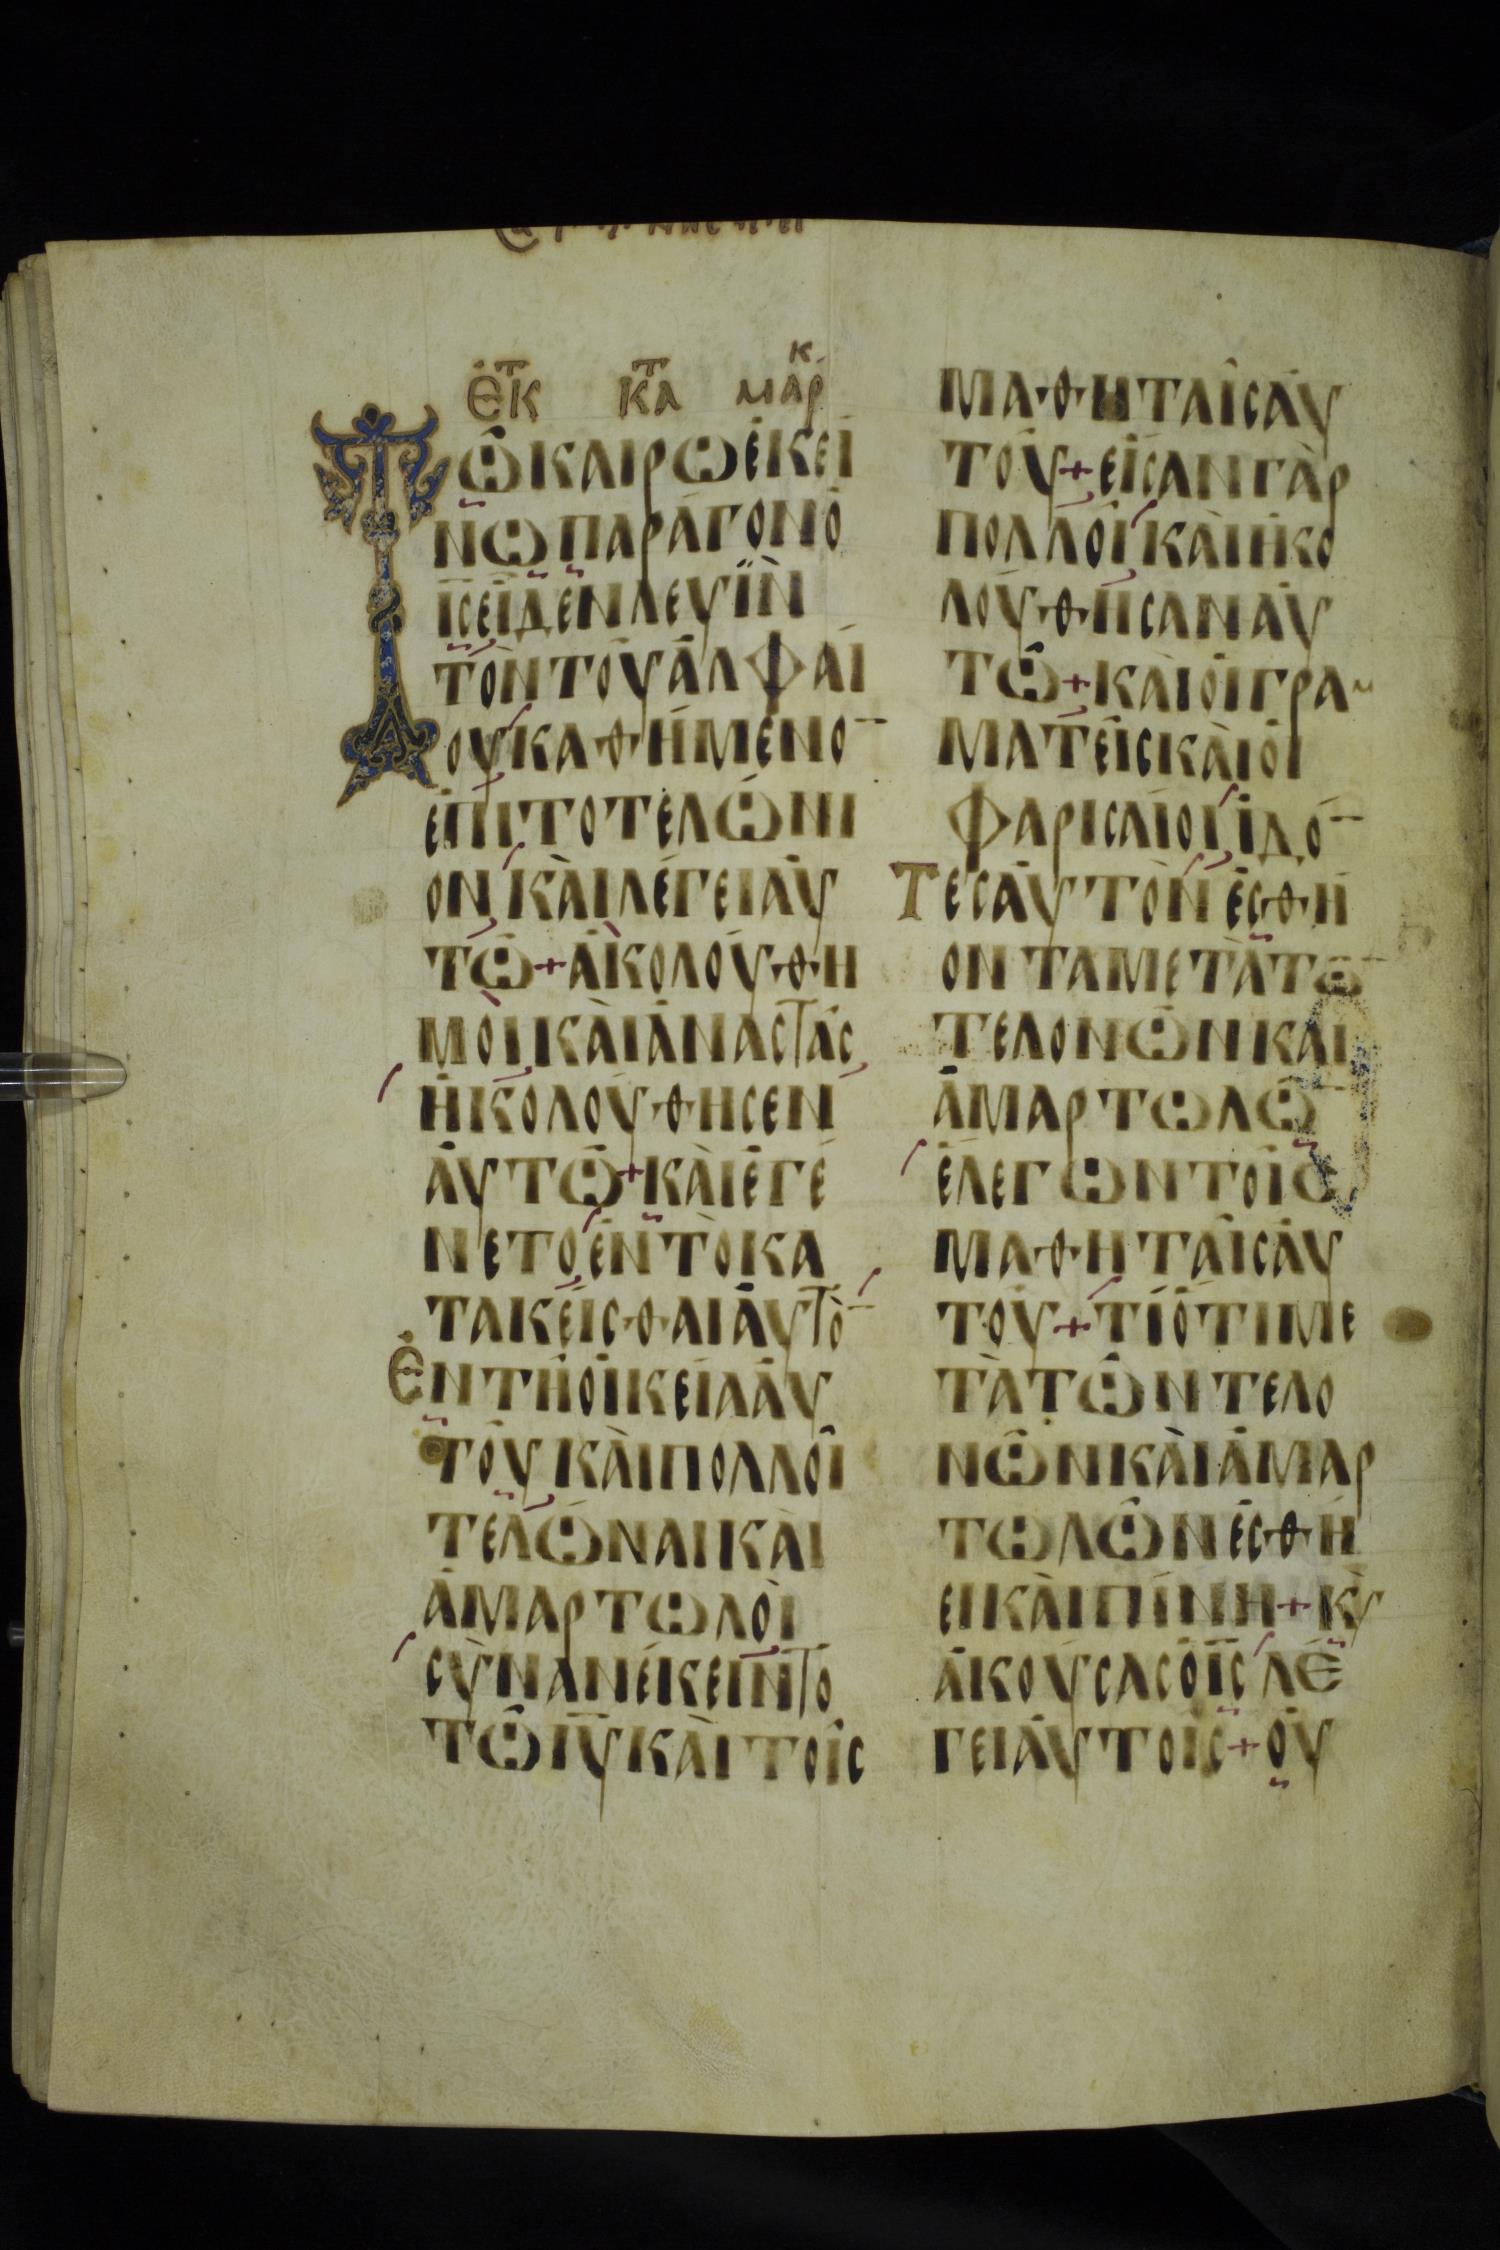 ἐκ κτα μαρκ
Τῶ καιρῶ ἐκεί
νω παράγον ὁ
ις εἶδεν λευῒν
τὸν τοῦ ἀλφαί
ου καθήμενο̅
ἐπι το τελώνι
ον καὶ λέγει αὐ
τῶ + ἀκολούθη
μὸι καὶ ἀναστάς
ἠκολούθησεν
ἀυτῶ + καὶ ἐγέ
νετο ἐν τὸ κα
τακεῖσθαι ἀυτὸ̅
Ἐν τῆ οἰκεία ἀυ
τοῦ καὶ πολλοὶ
τελῶναι καὶ
ἁμαρτωλοὶ
σὺνανέκειντο
τῶ ιυ καὶ τοῖς
μαθηταῖς ἀυ
τοῦ + εἶσαν γὰρ
πολλοί καὶ ἠκο
λούθησαν ἀυ
τῶ + καὶ οἱ γρα
ματεῖς καὶ οἱ
φαρισαῖοι ἰδό̅
Τες ἀυτὸν ἐσθή
οντα μετὰ τω̅
τελονῶν καὶ
ἁμαρτωλῶ̅
ἐλεγων τοῖς
μαθηταῖς ἀυ
τοῦ + τί ὅτι με
τὰ τῶν τελο
νῶν καὶ ἁμαρ
τωλῶν ἐσθή
ει καὶ πίνη + κς
ἀκούσας ὁ ις λέ
γει ἀυτοῖς + ὀυ